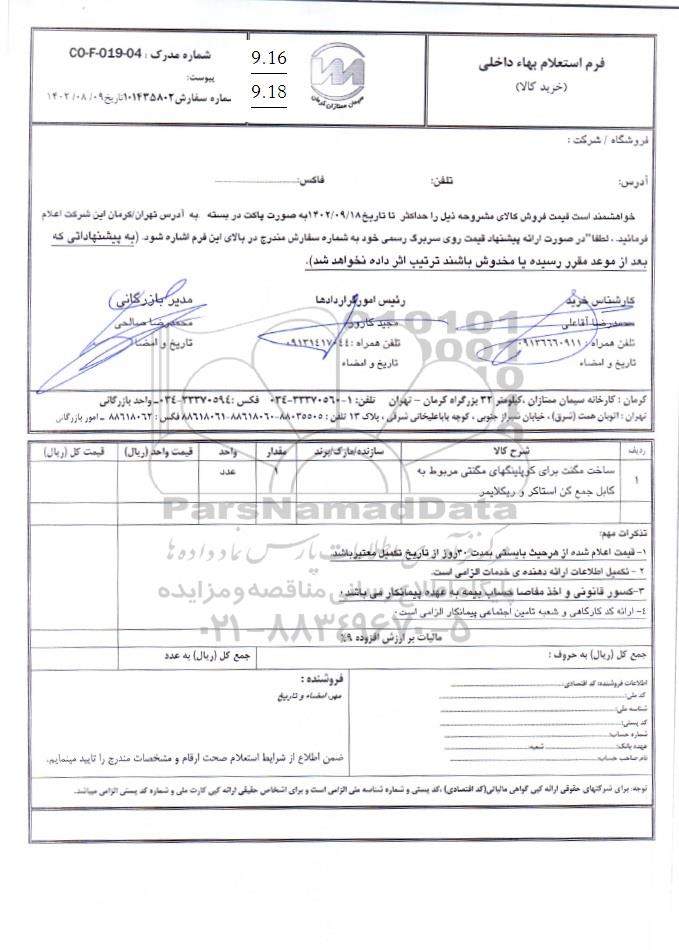 فرم استعلام بهاء داخلی
(خرید کالا)
سیمان ممتازان کرمان
9.16
9.18
شماره مدرک : CO-F-019-04
پیوست:
شماره سفارش ۱۰۱۴۳۵۸۰۲ تاریخ ۱۴۰۲/۰۸/۰۹
فروشگاه / شرکت :
آدرس: تلفن: فاکس:
خواهشمند است قیمت فروش کالای مشروحه ذیل را حداکثر تا تاریخ ۱۴۰۲/۰۹/۱۸ به صورت پاکت در بسته به آدرس تهران/کرمان این شرکت اعلام
فرمائید. ، لطفا" در صورت ارائه پیشنهاد قیمت روی سربرگ رسمی خود به شماره سفارش مندرج در بالای این فرم اشاره شود. (به پیشنهاداتی که
بعد از موعد مقرر رسیده یا مخدوش باشند ترتیب اثر داده نخواهد شد).
کارشناس خرید رئیس امور قراردادها مدیر بازرگانی
محمدرضا آقاعلی مجید کارور محمدرضا صالحی
تلفن همراه : ۰۹۱۳۶۶۶۰۹۱۱ تلفن همراه : ۰۹۱۳۱۴۱۷۰۴۴ تاریخ و امضاء
تاریخ و امضاء تاریخ و امضاء
کرمان : کارخانه سیمان ممتازان ،کیلومتر ۳۲ بزرگراه کرمان – تهران تلفن: ۱-۳۳۳۷۰۵۶۰-۰۳۴ فکس : ۳۳۳۷۰۵۹۴-۰۳۴ – واحد بازرگانی
تهران : اتوبان همت (شرق) ، خیابان شیراز جنوبی ، کوچه باباعلیخانی شرقی ، پلاک ۱۳ تلفن : ۸۸۰۳۵۵۰۵-۸۸۶۱۸۰۶۰-۸۸۶۱۸۰۶۱ فکس : ۸۸۶۱۸۰۶۲ – امور بازرگانی
ردیف شرح کالا سازنده/مارک/برند مقدار واحد قیمت واحد (ریال) قیمت کل (ریال)
۱ ساخت مگنت برای کوپلینگهای مگنتی مربوط به ۱ عدد
کابل جمع کن استاکر و ریکلایمر
ParsNamadData
پایگاه اطلاع رسانی مناقصه و مزایده
۰۲۱-۸۸۳۴۹۶۷۰-۵
تذکرات مهم:
۱- قیمت اعلام شده از هرحیث بایستی بمدت ۳۰روز از تاریخ تکمیل معتبرباشد.
۲ - تکمیل اطلاعات ارائه دهنده ی خدمات الزامی است.
۳-کسور قانونی و اخذ مفاصا حساب بیمه به عهده پیمانکار می باشد .
۴- ارائه کد کارگاهی و شعبه تامین اجتماعی پیمانکار الزامی است .
مالیات بر ارزش افزوده ۹%
جمع کل (ریال) به حروف : جمع کل (ریال) به عدد
اطلاعات فروشنده: کد اقتصادی:
کد ملی:
شناسه ملی:
کد پستی:
شماره حساب:
عهده بانک: شعبه:
نام صاحب حساب:
فروشنده :
مهر، امضاء و تاریخ
ضمن اطلاع از شرایط استعلام صحت ارقام و مشخصات مندرج را تایید مینمایم.
توجه: برای شرکتهای حقوقی ارائه کپی گواهی مالیاتی(کد اقتصادی) ،کد پستی و شماره شناسه ملی الزامی است و برای اشخاص حقیقی ارائه کپی کارت ملی و شماره کد پستی الزامی میباشد.